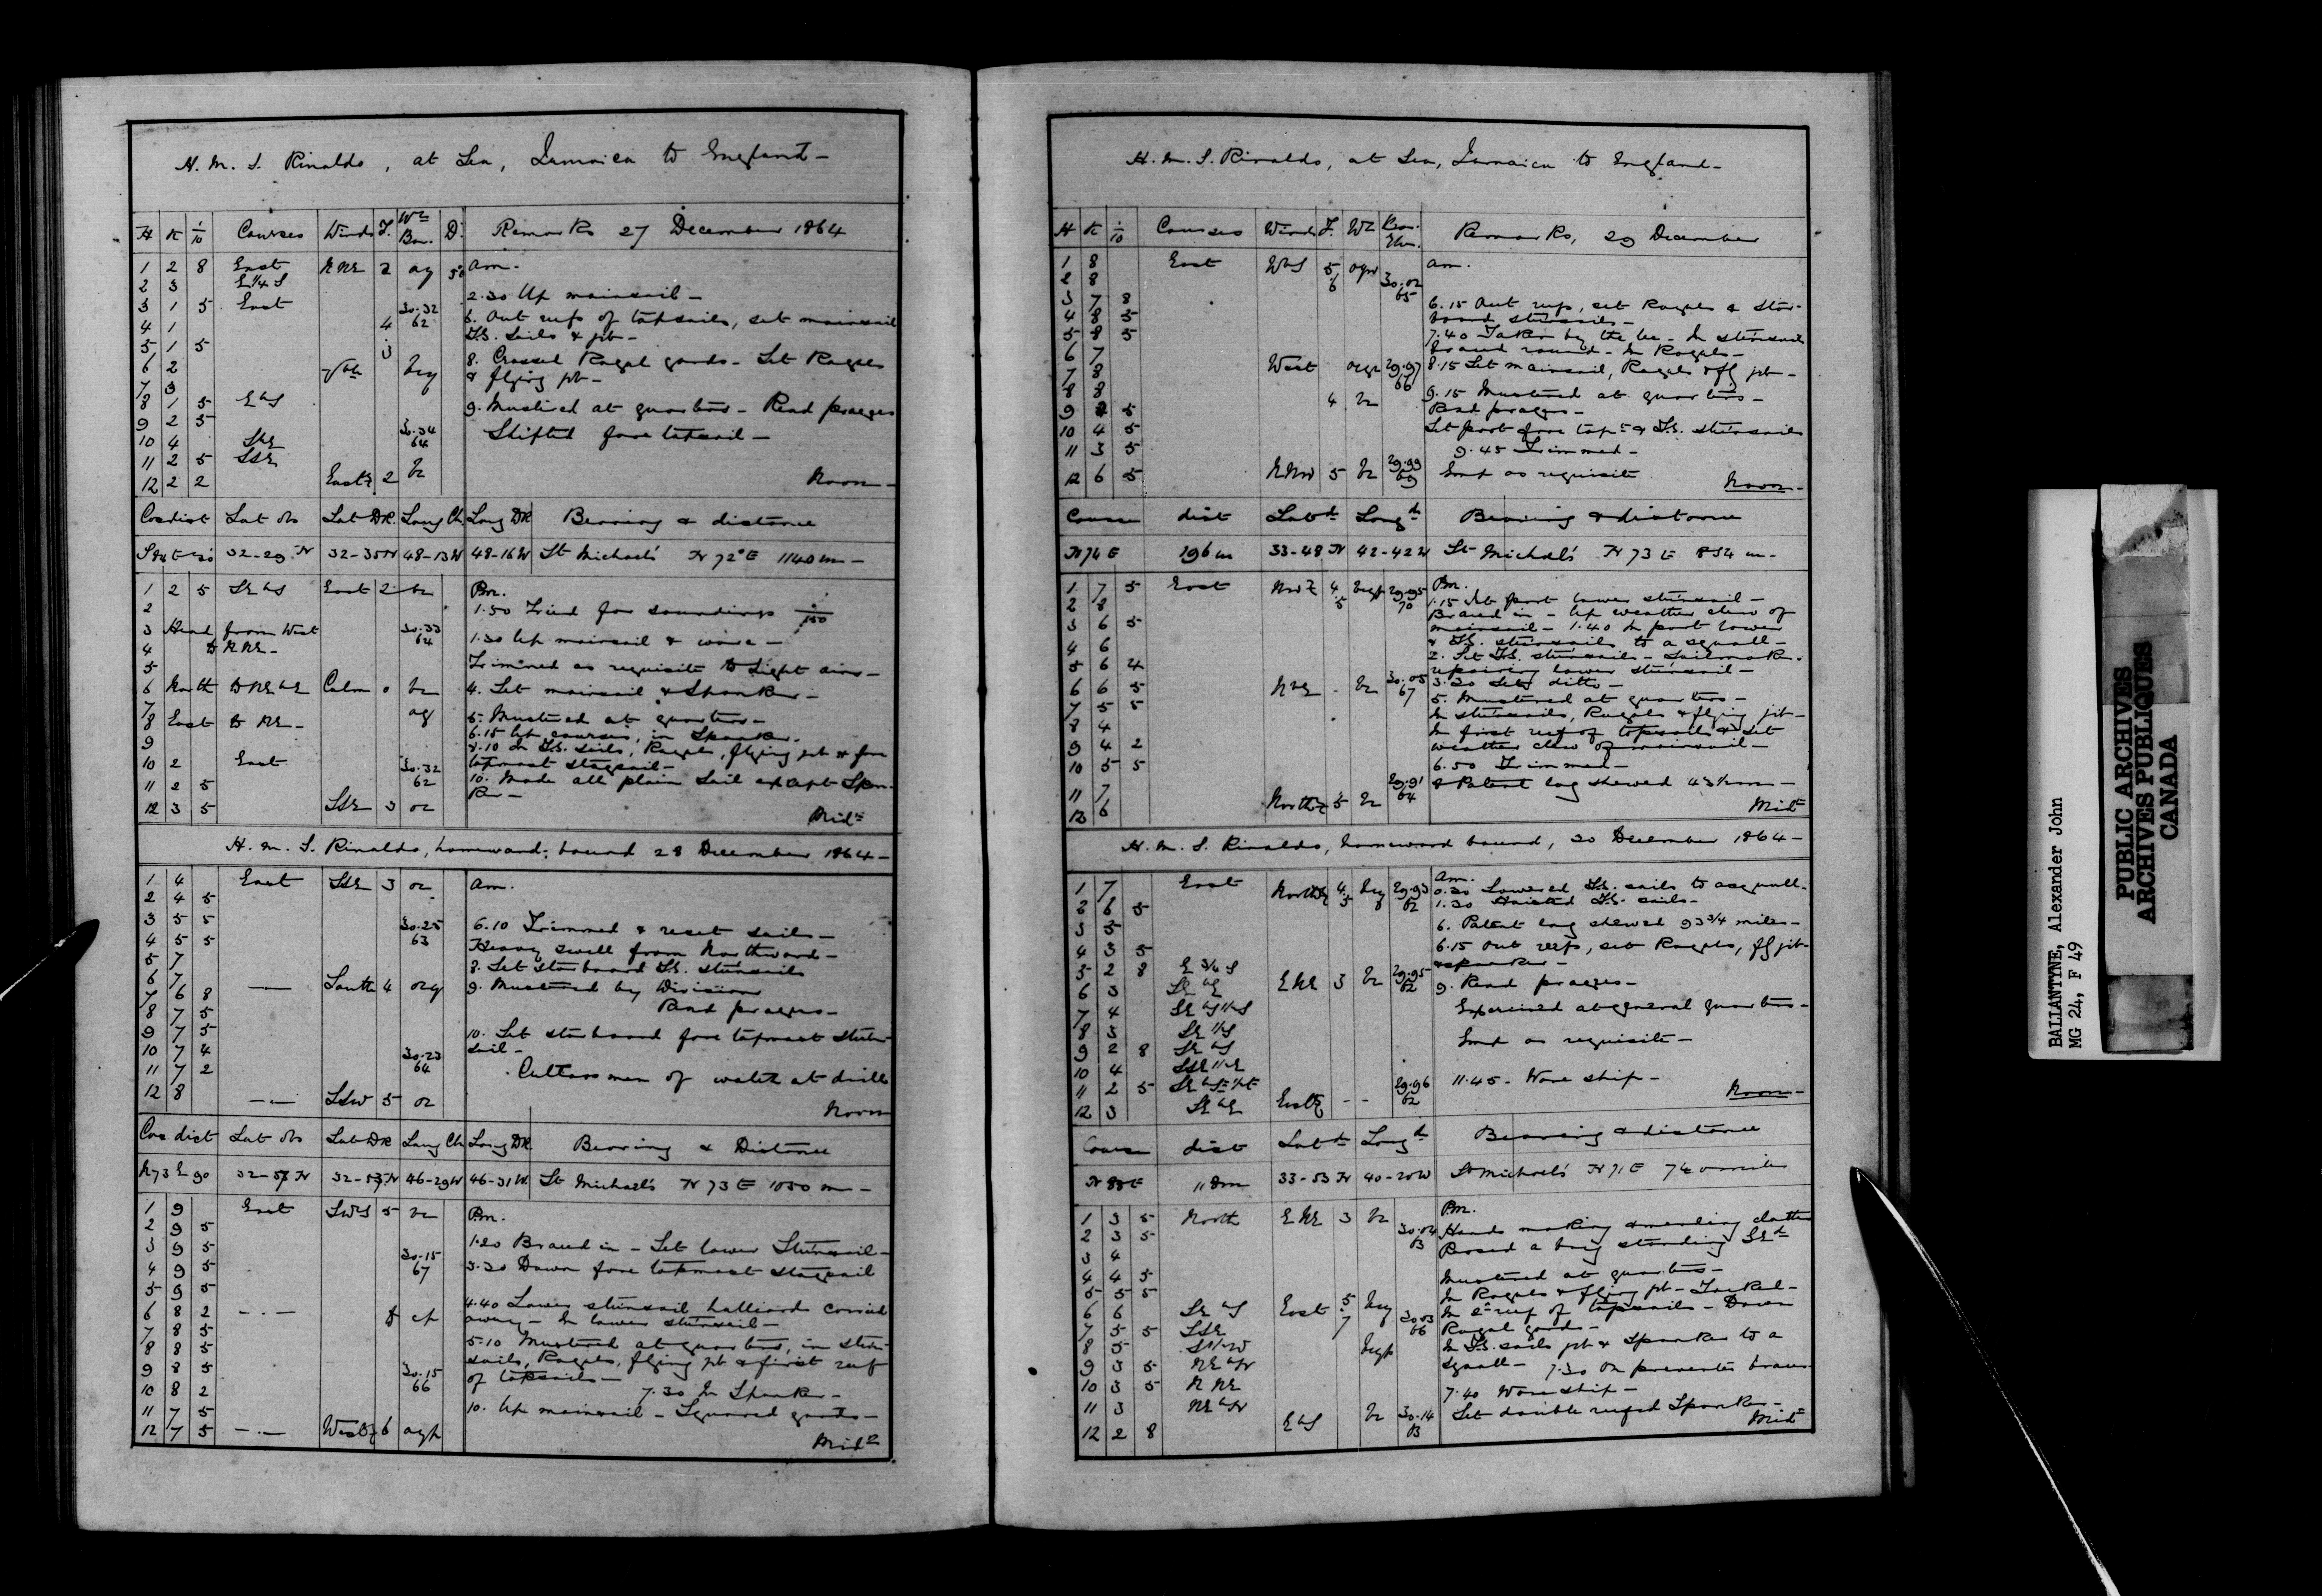 H. M. S. Rinaldo, at Sea, Jamaica to England -
H K 1/10 Courses Winds F. Wr Bar. D. Remarks 27 December 1864
1 2 8 East NNE 2 am.
2 3 E1/4S
2.30 Up mainsail -
3 1 5 East 30.32 62
6. Out reefs of topsails, set mainsail
4 1 4
F.S. Sails & jib -
5 1 5 3
8. Crossed Royal yards - Set Royals
6 2
& flying jib -
7 3
8 1 5 EbS
9. Mustered at quarters - Read prayers
9 2 5
10 4 30.34 64
Shifted fore topsail -
11 2 5 SSE
12 2 2 2 Noon -
Cos dist Lat Obs Lat DR. Long Ch. Long DR Bearing & distance
32-29 N 32-35 N 48-13 W 48-16 W St Michael's N 72° E 1140 m -
1 2 5 SEbS East 2 Pm.
2 1.50 Tried for soundings 0/150
3 Head from West 30.33 64
1.30 Up mainsail & wore -
4 to NNE -
5 Trimmed as requisite to light airs -
6 North to NEbE Calm 0 4. Set mainsail & Spanker -
7
8 East to NE - 5. Mustered at quarters -
9 6.15 Up courses, in Spanker.
8.10 In F.S. sails, Royals, flying jib & fore
10 2 East 30.32 62 topmast staysail -
11 2 5 10. Made all plain Sail except Span-
ker -
12 3 5 SSE 3 Midt
H. M. S. Rinaldo, homeward bound 28 December 1864 -
1 4 East SSE 3 am.
2 4 5
3 5 5 30.25 63 6.10 Trimmed & reset sails -
4 5 5 Heavy swell from Northward -
5 7 8. Set starboard F.S. stunsails
6 7 South 4 9. Mustered by Divisions
7 6 8 Read prayers -
8 7 5
9 7 5 10. Set starboard fore topmast stun-
10 7 4 30.23 64 sail -
11 7 2 Cutlass men of watch at drill
12 8 SSW 5 Noon
Cos dist Lat Obs Lat DR Long Ch Long DR Bearing & Distance
N 73 E 90 46-29 W 46-31 W St Michael's N 73 E 1050 m -
1 9 East SWbS 5 Pm.
2 9 5
3 9 5 30.15 67 1.20 Braced in - Set lower Stunsail -
4 9 5 3.30 Down fore topmast staysail
5 9 5
6 8 2 4.40 Lower stunsail halliards carried
7 8 5 away - In lower stunsail -
8 8 5 5.10 Mustered at quarters, in stun-
9 8 5 30.15 66 sails, Royals, flying jib & first reef
of topsails -
10 8 2 7.30 In Spanker -
11 7 5 10. Up mainsail - Squared yards -
12 7 5 6 Midt
H. M. S. Rinaldo, at Sea, Jamaica to England -
H K 1/10 Courses Winds F. Wr Remarks, 29 December
1 8 East WbS 5 am.
2 8 6 30.02 65
3 7 8 6.15 Out reefs, set Royals & star-
4 8 5 board stunsails -
5 8 5 7.40 Taken by the lee - In stunsails
6 7 Braced round - In Royals -
7 8 West 29.97 66 8.15 Set mainsail, Royals & fg jib -
8 8 9.15 Mustered at quarters -
9 5 4 Read prayers -
10 4 5 Set port fore topmt & F.S. stunsails
11 3 5 9.45 Trimmed -
12 6 5 NNW 5 29.99 69 as requisite Noon -
Course dist Latd Longd Bearing & distance
N 74 E 196 m 33-48 N 42-42 W St Michael's N 73 E 854 m -
1 7 5 East 4 29.95 70 Pm.
2 8 5 1.15 Set port lower stunsail -
3 6 5 Braced in - Up weather clew of
4 6 mainsail - 1.40 In port lower
& F.S. stunsails to a squall -
5 6 4 2. Set F.S. stunsails - Sailmaker
repairing lower stunsail -
6 6 5 NbE 30.05 67 3.30 Set ditto -
7 5 5 5. Mustered at quarters -
8 4 In stunsails, Royals & flying jib -
9 4 2 In first reef of topsails & Set
weather clew of mainsail -
10 5 5 6.50 Trimmed -
11 7 29.91 64 8 Patent log shewed
12 6 5 Midt
H. M. S. Rinaldo, homeward bound, 30 December 1864 -
1 7 East 4 29.93 62 am.
0.30 Lowered F.S. sails to a squall -
2 6 5 5 1.30 Hoisted F.S. sails -
3 5 6. Patent log shewed 93 3/4 miles -
4 3 5 6.15 Out reefs, set Royals, fg jib
5 2 8 E 3/4 S & spanker -
6 3 SEbE ENE 3 29.95 62 9. Read prayers -
7 4 Exercised at general quarters -
8 3
9 2 8 SEbS as requisite -
10 4
11 2 5 29.96 62 11.45. Wore ship -
12 3 SEbE Noon -
Course dist Latd Longd Bearing & distance
33-53 N 40-20 W St Michael's N 71 E 740 miles
1 3 5 North ENE 3 Pm.
2 3 5 30.04 63 Hands making & mending clothes
3 4 Passed a brig standing SEd
4 4 5 Mustered at quarters -
5 5 5 In Royals & flying jib - Tacked -
6 6 SEbS East 5 In 2d reef of topsails - Down
7 5 5 SSE 7 30.03 66 Royal yards -
8 5 In F.S. sails jib & Spanker to a
9 3 5 NEbN squall - 7.30 On preventer braces
10 3 5 NNE 7.40 Wore ship -
11 3 NEbN Set double reefed Spanker -
12 2 8 EbS 30.14 63 Midt
BALLANTYNE, Alexander John
MG 24, F 49
PUBLIC ARCHIVES
ARCHIVES PUBLIQUES
CANADA